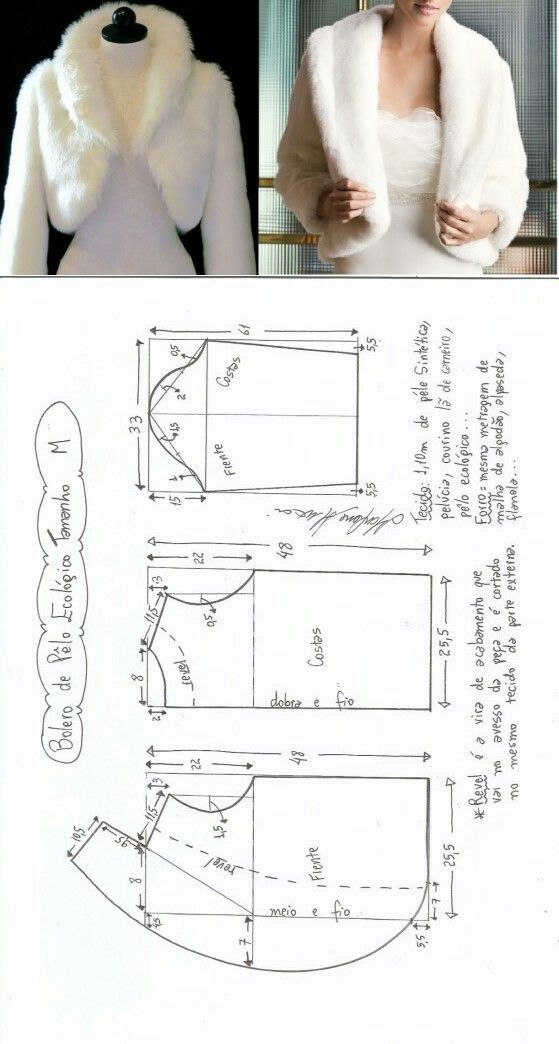 Bolero de Pêlo Ecológico Tamanho M
61
33
15
0,5
2
1,5
1
Costas
Frente
5,5
5,5
Tecido: 1,10m de péle Sintética,
pelúcia, courino lã de carneiro,
pelo ecológico...
Forro = mesma metragem de
malha de algodão,
flanela...
48
22
3
11,5
8
2
0,5
revel
Costas
dobra e fio
25,5
*Revel é a vira de acabamento que
vai no avesso da peça e é cortado
no mesmo tecido da parte externa.
48
22
3
11,5
10,5
9,5
8
1,5
1,5
revel
Frente
meio e fio
7
25,5
7
5,5